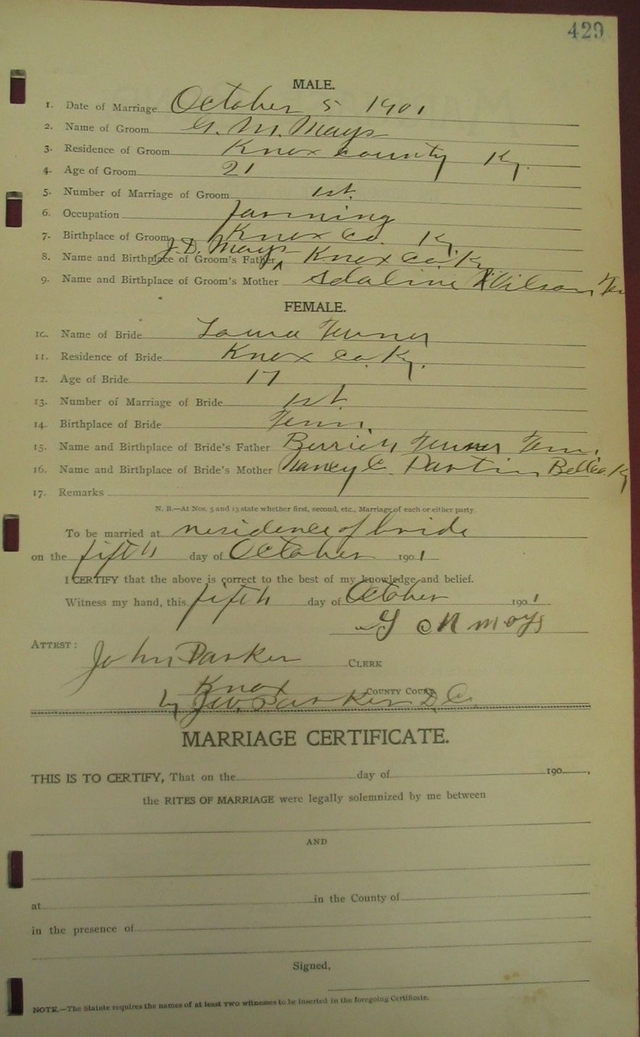 429
MALE.
1. Date of Marriage October 5 1901
2. Name of Groom G. M. Mays
3. Residence of Groom Knox county Ky.
4. Age of Groom 21
5. Number of Marriage of Groom 1st.
6. Occupation farming
7. Birthplace of Groom Knox Co. Ky.
J. D. Mays
8. Name and Birthplace of Groom's Father ^ Knox Co. Ky.
9. Name and Birthplace of Groom's Mother Adaline Wilson
FEMALE.
10. Name of Bride Turner
11. Residence of Bride Knox Co. Ky.
12. Age of Bride 17
13. Number of Marriage of Bride 1st.
14. Birthplace of Bride Tenn.
15. Name and Birthplace of Bride's Father Turner Tenn.
16. Name and Birthplace of Bride's Mother Nancy E. Partin Ky
17. Remarks
N. B.—At Nos. 5 and 13 state whether first, second, etc., Marriage of each or either party.
To be married at residence of bride
on the fifth day of October 1901
I CERTIFY that the above is correct to the best of my knowledge and belief.
Witness my hand, this fifth day of October 1901
G M mays
ATTEST:
John Parker CLERK
Knox COUNTY COURT
by Parker D. C.
MARRIAGE CERTIFICATE.
THIS IS TO CERTIFY, That on the day of 190 ,
the RITES OF MARRIAGE were legally solemnized by me between
AND
at in the County of
in the presence of
Signed,
NOTE.—The Statute requires the names of at least TWO witnesses to be inserted in the foregoing Certificate.